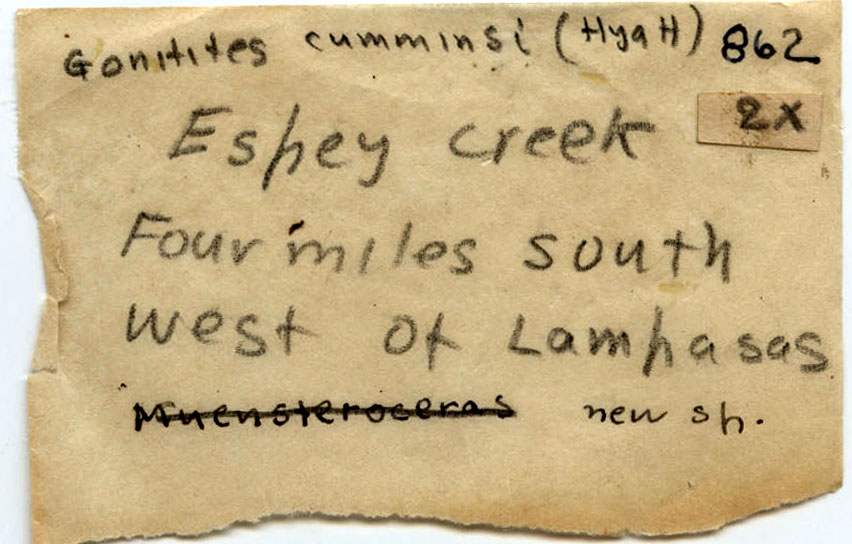 Gonitites cumminsi (Hyatt) 862
2X
Espey creek
Four miles south
west of Lampasas
Muensteroceras new sp.